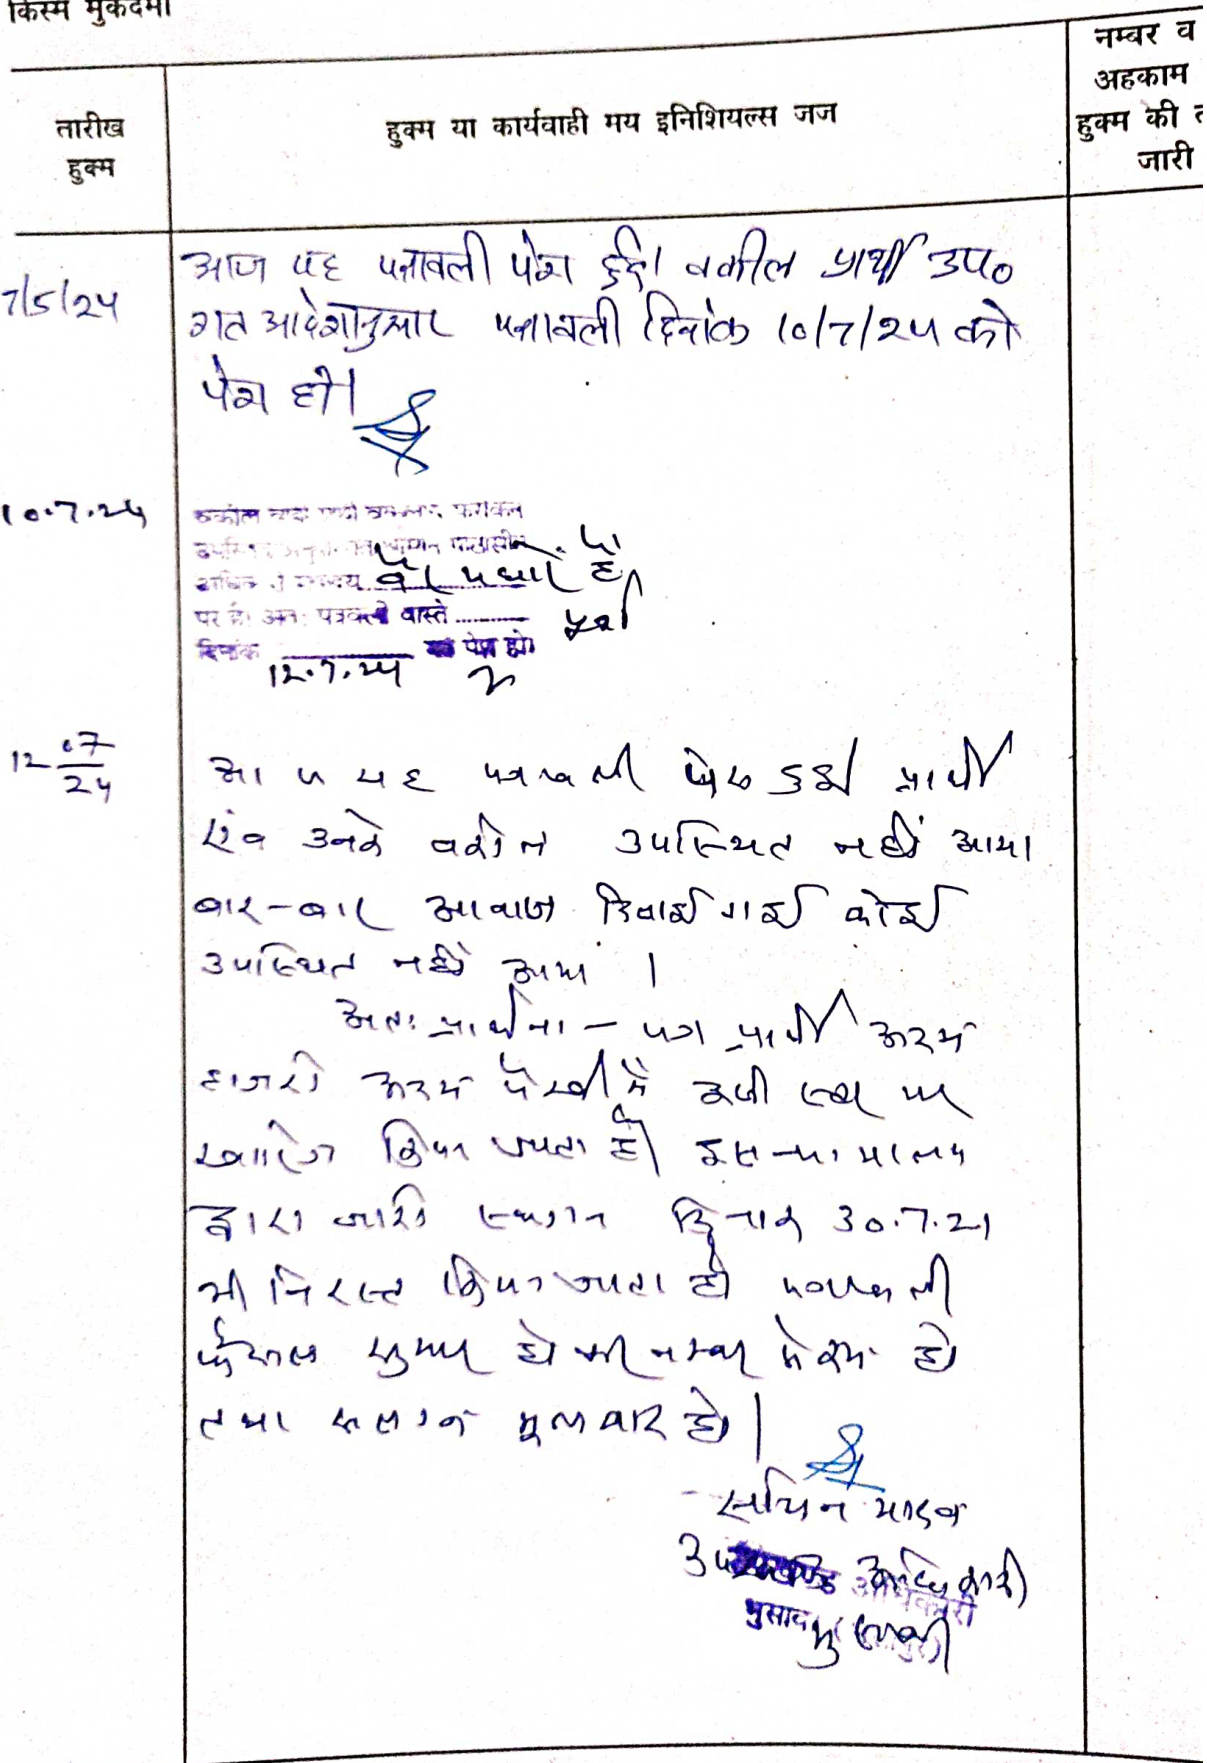 किस्म मुकदमा
तारीख
हुक्म
हुक्म या कार्यवाही मय इनिशियल्स जज
नम्बर व
अहकाम
हुक्म की त
जारी
7/5/24
आज यह पत्रावली पेश हुई। वकील प्रार्थी उप०
गत आदेशानुसार पत्रावली दिनांक 10/7/24 को
पेश हो।
10.7.24
वकील
पर है। अतः पत्रावली वास्ते ..........
दिनांक 12.7.24 को पेश हो।
12 07/24
आज यह पत्रावली पेश हुई प्रार्थी
एंव उनके वकील उपस्थित नहीं आया
बार-बार आवाज दिवाई गई कोई
उपस्थित नहीं आया ।
अतः प्रार्थना-पत्र प्रार्थी अदम
हाजरी अदम पैरवी में इसी स्तर पर
खारिज किया जाता है। इस न्यायालय
द्वारा जारी स्थगन दिनांक 30.7.21
भी निरस्त किया जाता है। पत्रावली
फैसल शुमार हो कर नम्बर से कम हो
तथा संलग्न मूलवाद हो।
सचिन यादव
उपखण्ड अधिकारी
भुसावर